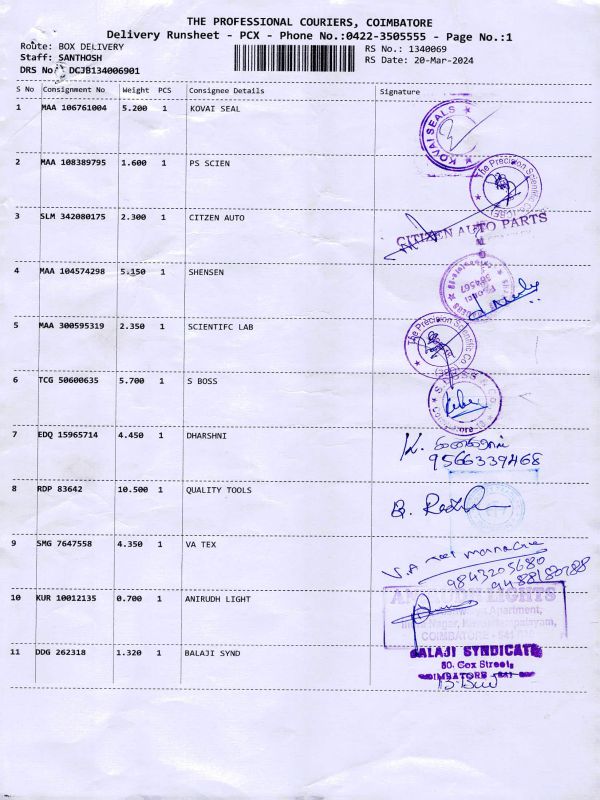 THE PROFESSIONAL COURIERS, COIMBATORE
Delivery Runsheet - PCX - Phone No.:0422-3505555 - Page No.:1
Route: BOX DELIVERY
RS No.: 1340069
Staff: SANTHOSH
RS Date: 20-Mar-2024
DRS No: DCJB134006901
S No Consignment No Weight PCS Consignee Details Signature
1 MAA 106761004 5.200 1 KOVAI SEAL
KOVAI SEALS
2 MAA 108389795 1.600 1 PS SCIEN
The Precision Scientific Co
3 SLM 342080175 2.300 1 CITZEN AUTO
CITIZEN AUTO PARTS
4 MAA 104574298 5.150 1 SHENSEN
5 MAA 300595319 2.350 1 SCIENTIFC LAB
The Precision Scientific Co
6 TCG 50600635 5.700 1 S BOSS
S BOSS & Co
7 EDQ 15965714 4.450 1 DHARSHNI
K.
9566339468
8 RDP 83642 10.500 1 QUALITY TOOLS
9 SMG 7647558 4.350 1 VA TEX
9843205680
9488180788
10 KUR 10012135 0.700 1 ANIRUDH LIGHT
ANIRUDH LIGHTS
Apartment,
COIMBATORE - 641
11 DDG 262318 1.320 1 BALAJI SYND
BALAJI SYNDICATE
80. Cox Street,
COIMBATORE